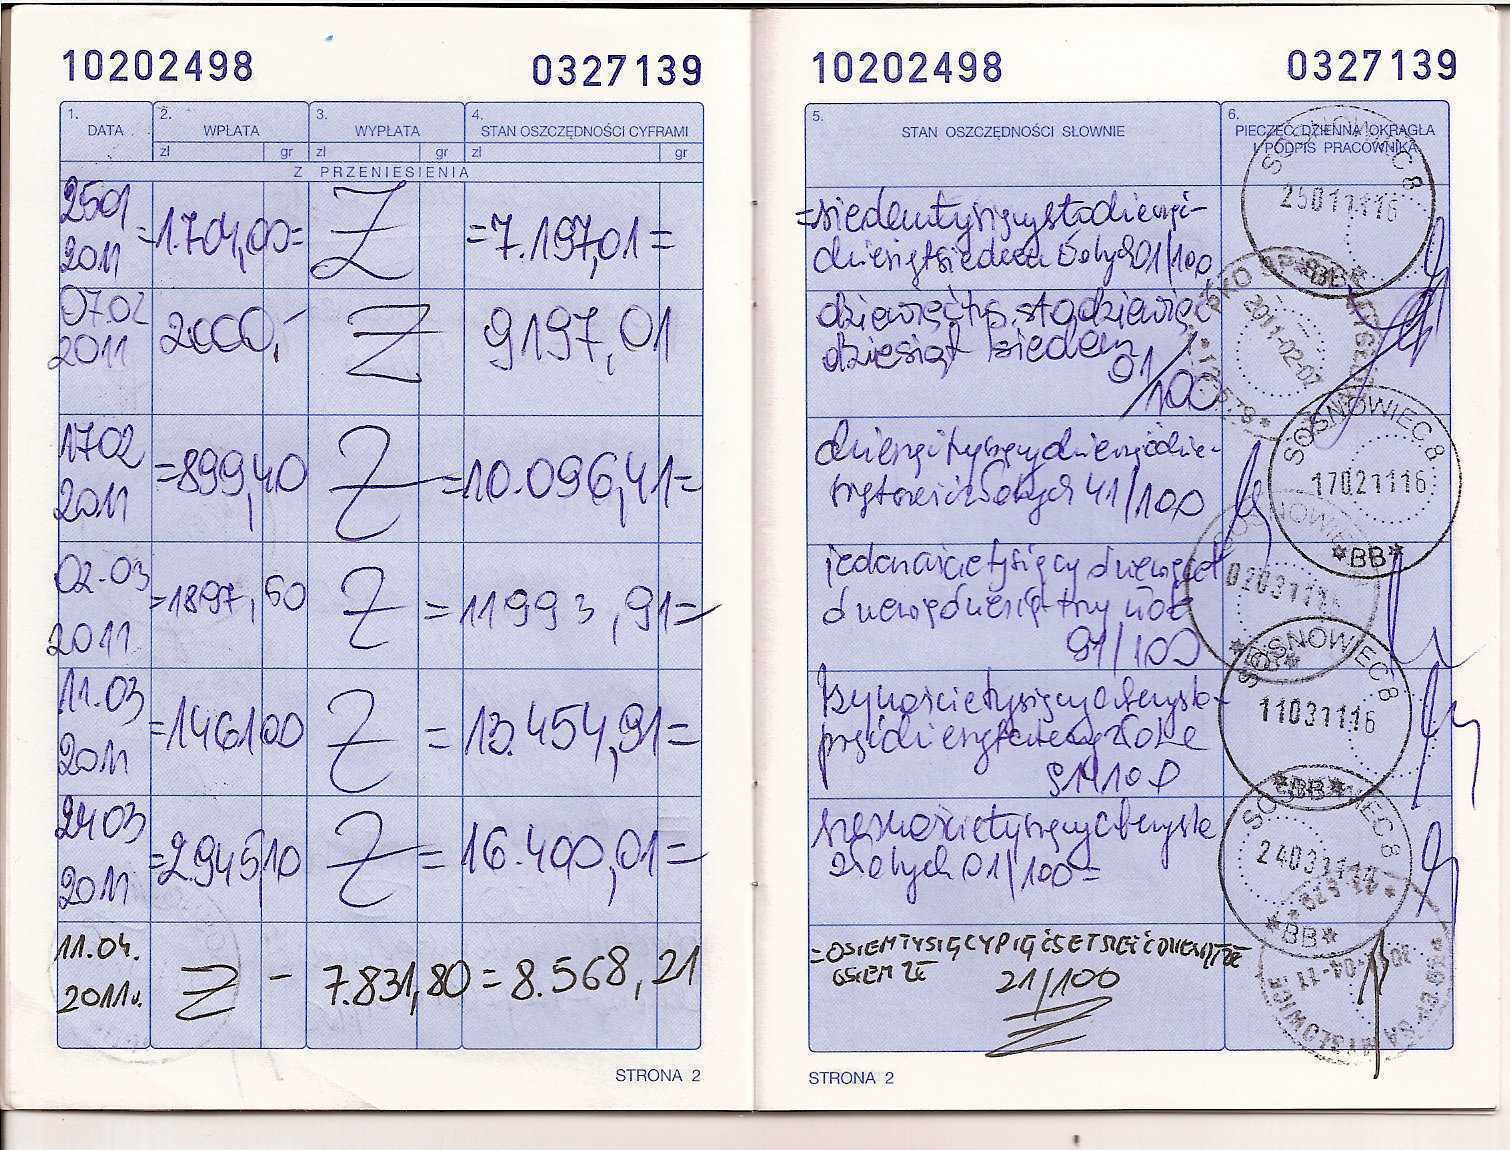 10202498 0327139
1. DATA 2. WPŁATA 3. WYPŁATA 4. STAN OSZCZĘDNOŚCI CYFRAMI
zł gr zł gr zł gr
Z PRZENIESIENIA
2501 2011 =1.704,00= Z =7.197,01=
07.02 2011 2000,- Z 9197,01
1702 2011 =899,40 Z =10.096,41=
02-03 2011 =1897,50 Z =11993,91=
11.03 2011 =146100 Z =13.454,91=
2403 2011 =2.945,10 Z =16.400,01=
11.04. 2011r. Z - 7.831,80 = 8.568,21
STRONA 2
10202498 0327139
5. STAN OSZCZĘDNOŚCI SŁOWNIE 6. PIECZĘĆ DZIENNA OKRĄGŁA
I PODPIS PRACOWNIKA
=siedemtysięcystodziewięć-
dziesiątsiedem złotych 01/100
SOSNOWIEC 8
25011116
dziewięć tys. stodziewięć
dziesiąt siedem
01/100
2011-02-07
dziesięćtysięcydziewięćdzie-
siątsześć złotych 41/100
SOSNOWIEC 8
17021116
*BB*
jedenaścietysięcy dziewięćset
dziewięćdziesiąt trzy złote
91/100
020311
trzynaścietysięcyczterysta
pięćdziesiątcztery złote
91/100
SOSNOWIEC 8
11031116
*BB*
szesnaścietysięcyczterysta
złotych 01/100=
24031114
*BB*
=OSIEMTYSIĘCYPIĘĆSETSZEŚĆDZIESIĄT
OSIEM ZŁ 21/100
STRONA 2